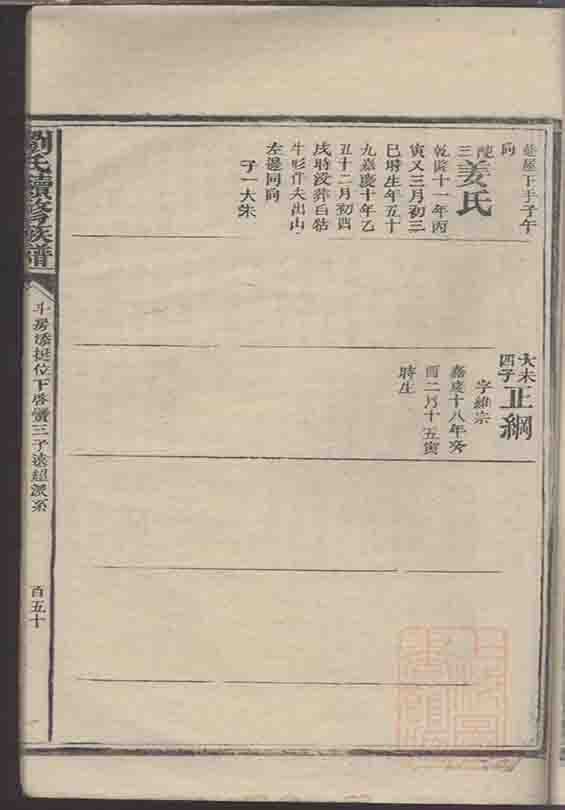 巷屋下手子午
向
三 姜氏
乾隆十一年丙
寅又三月初三
巳時生年五十
九嘉慶十年乙
丑十二月初四
戌時没葬白牯
牛形什夫出山
左邊同向
子一大朱
大未四子 正綱
字維宗
嘉慶十八年癸
酉二月十五寅
時生
劉氏續修族譜
斗房添挺位下啓價三子遠超派系
百五十